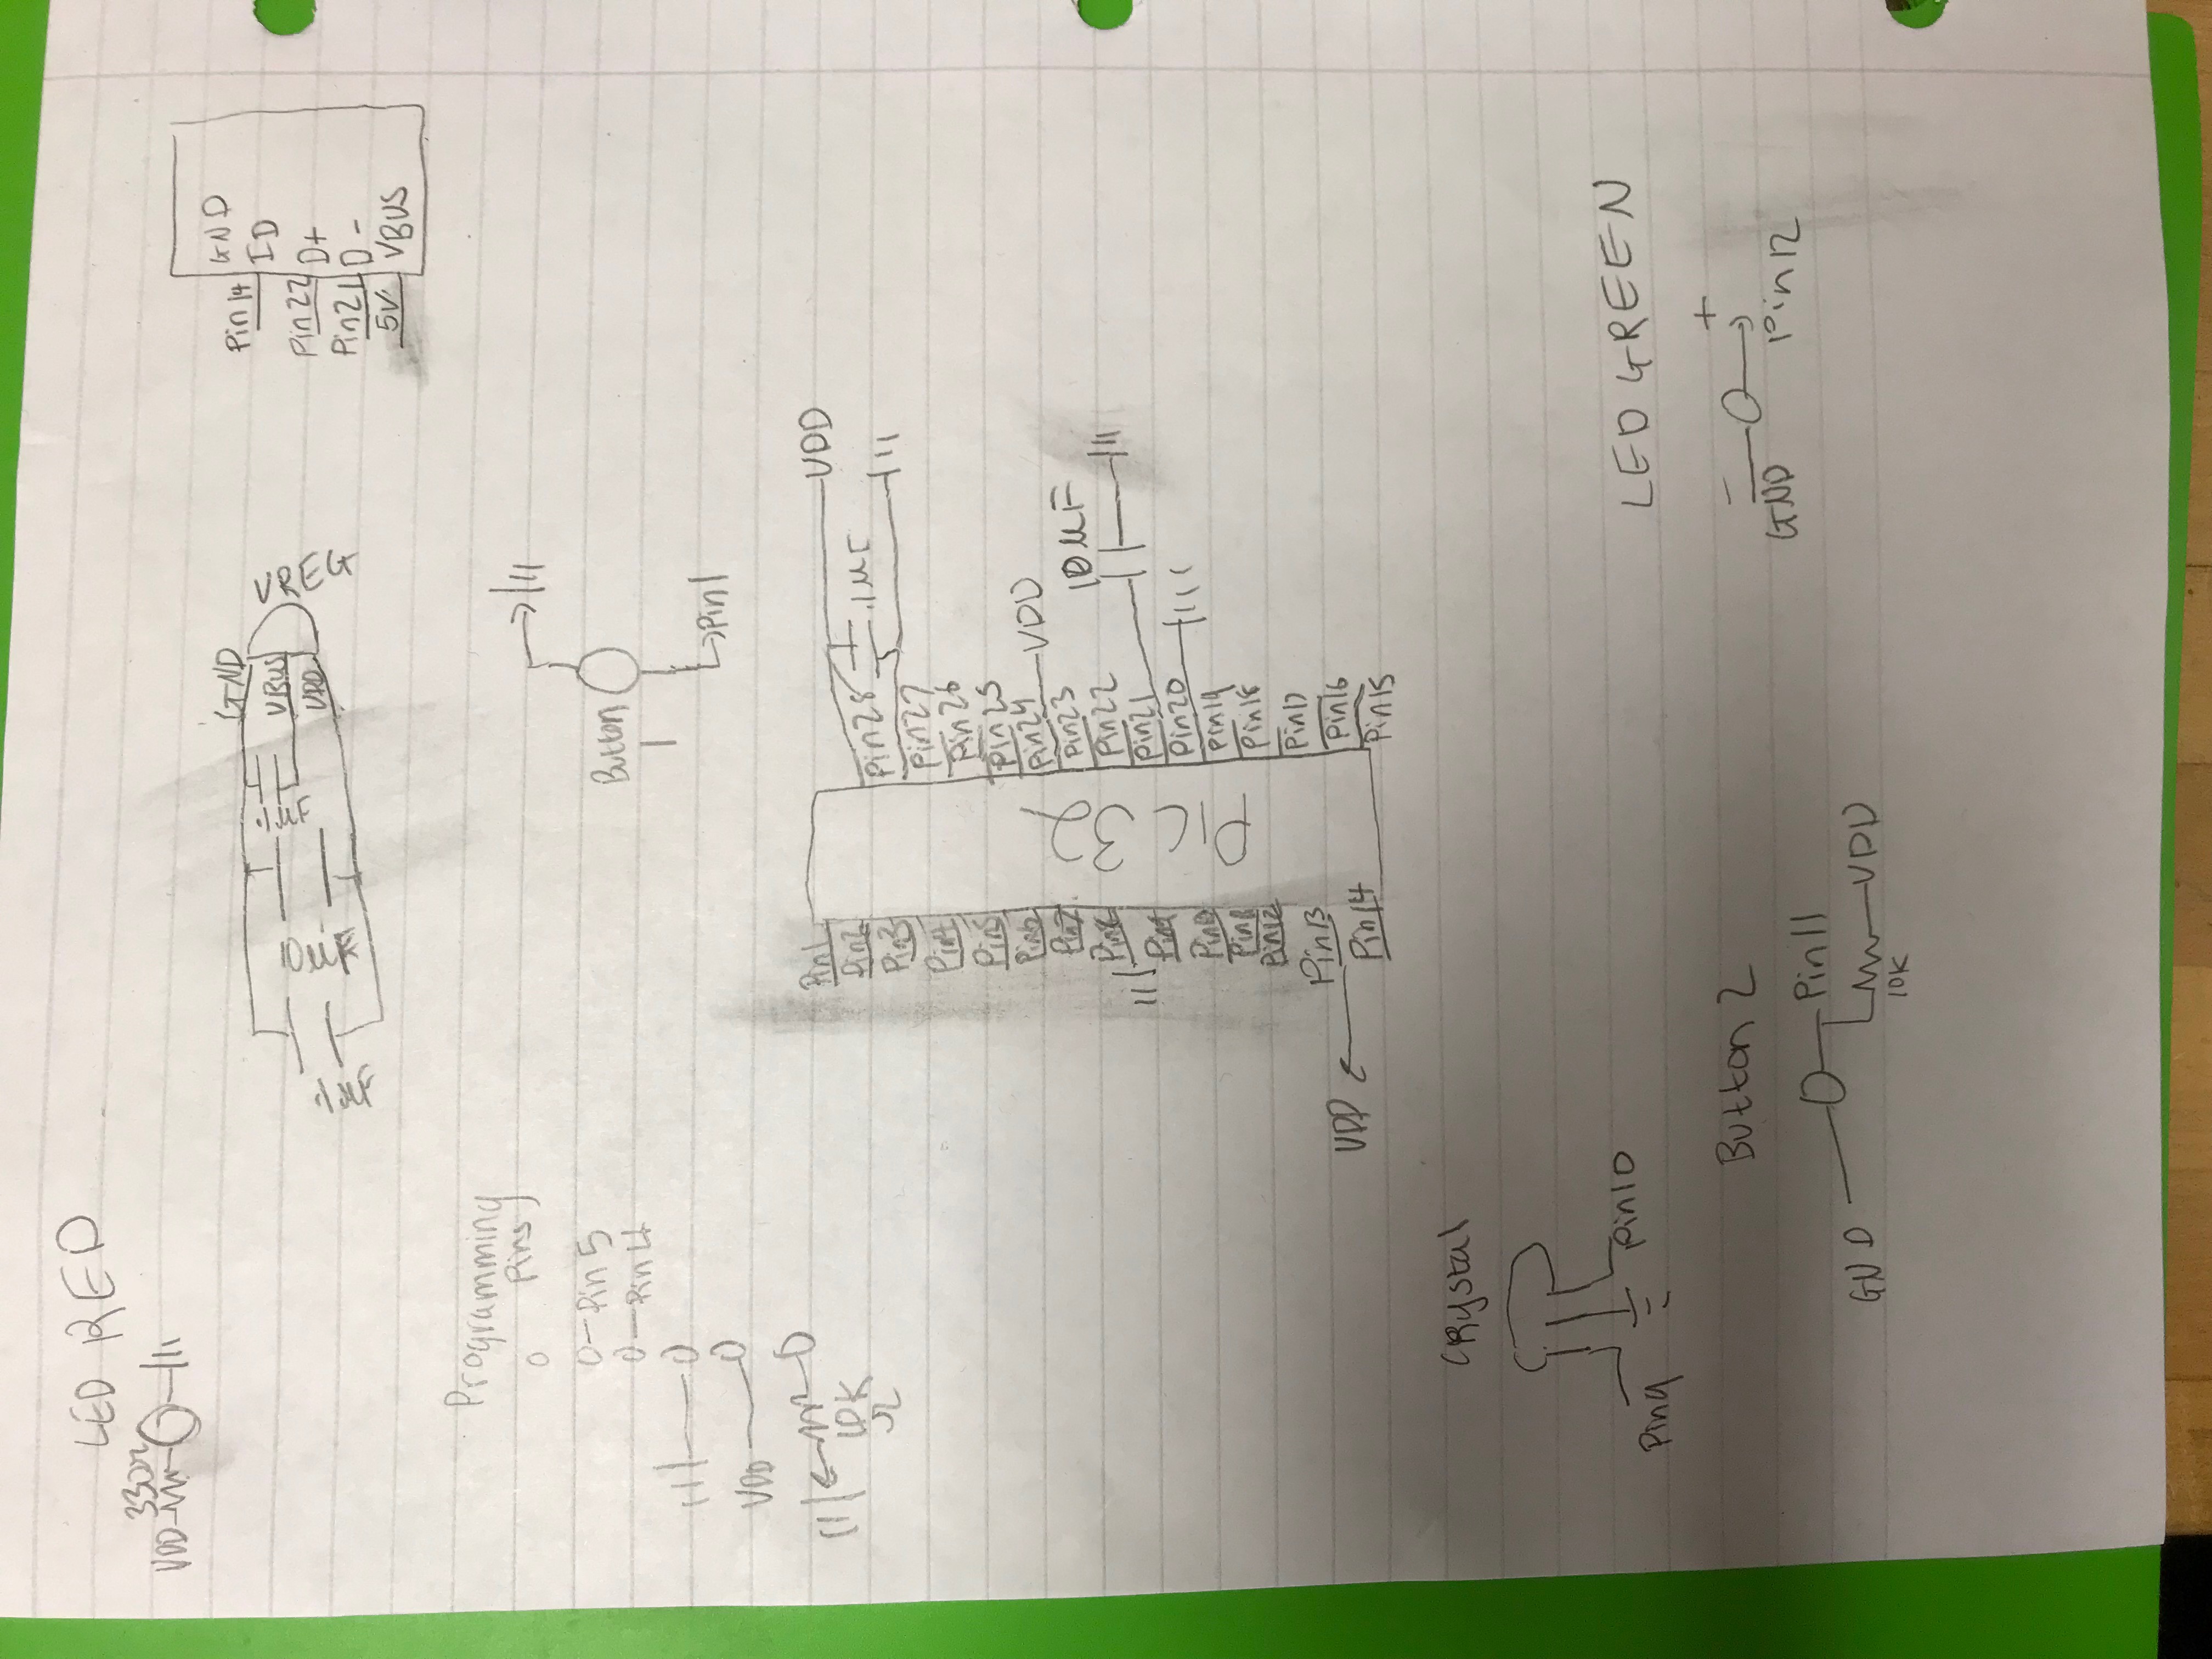 LED RED
330Ω
VDD
GND
VBUS
VDD
VREG
.1µF
10µF
.1µF
GND
Pin 14 ID
Pin 22 D+
Pin 21 D-
5V VBUS
Programming
Pins
Pin 5
Pin 4
VDD
10K
Ω
Button
1
Pin 1
PIC 32
Pin1
Pin2
Pin3
Pin4
Pin5
Pin6
Pin7
Pin8
Pin9
Pin10
Pin11
Pin12
Pin13
VDD
Pin14
VDD
Pin28
.1µF
Pin27
Pin26
Pin25
Pin24
VDD
Pin23
10µF
Pin22
Pin21
Pin20
Pin19
Pin18
Pin17
Pin16
Pin15
CRystal
Pin9
Pin10
LED GREEN
- +
GND Pin12
Button 2
Pin11
GND
VDD
10K